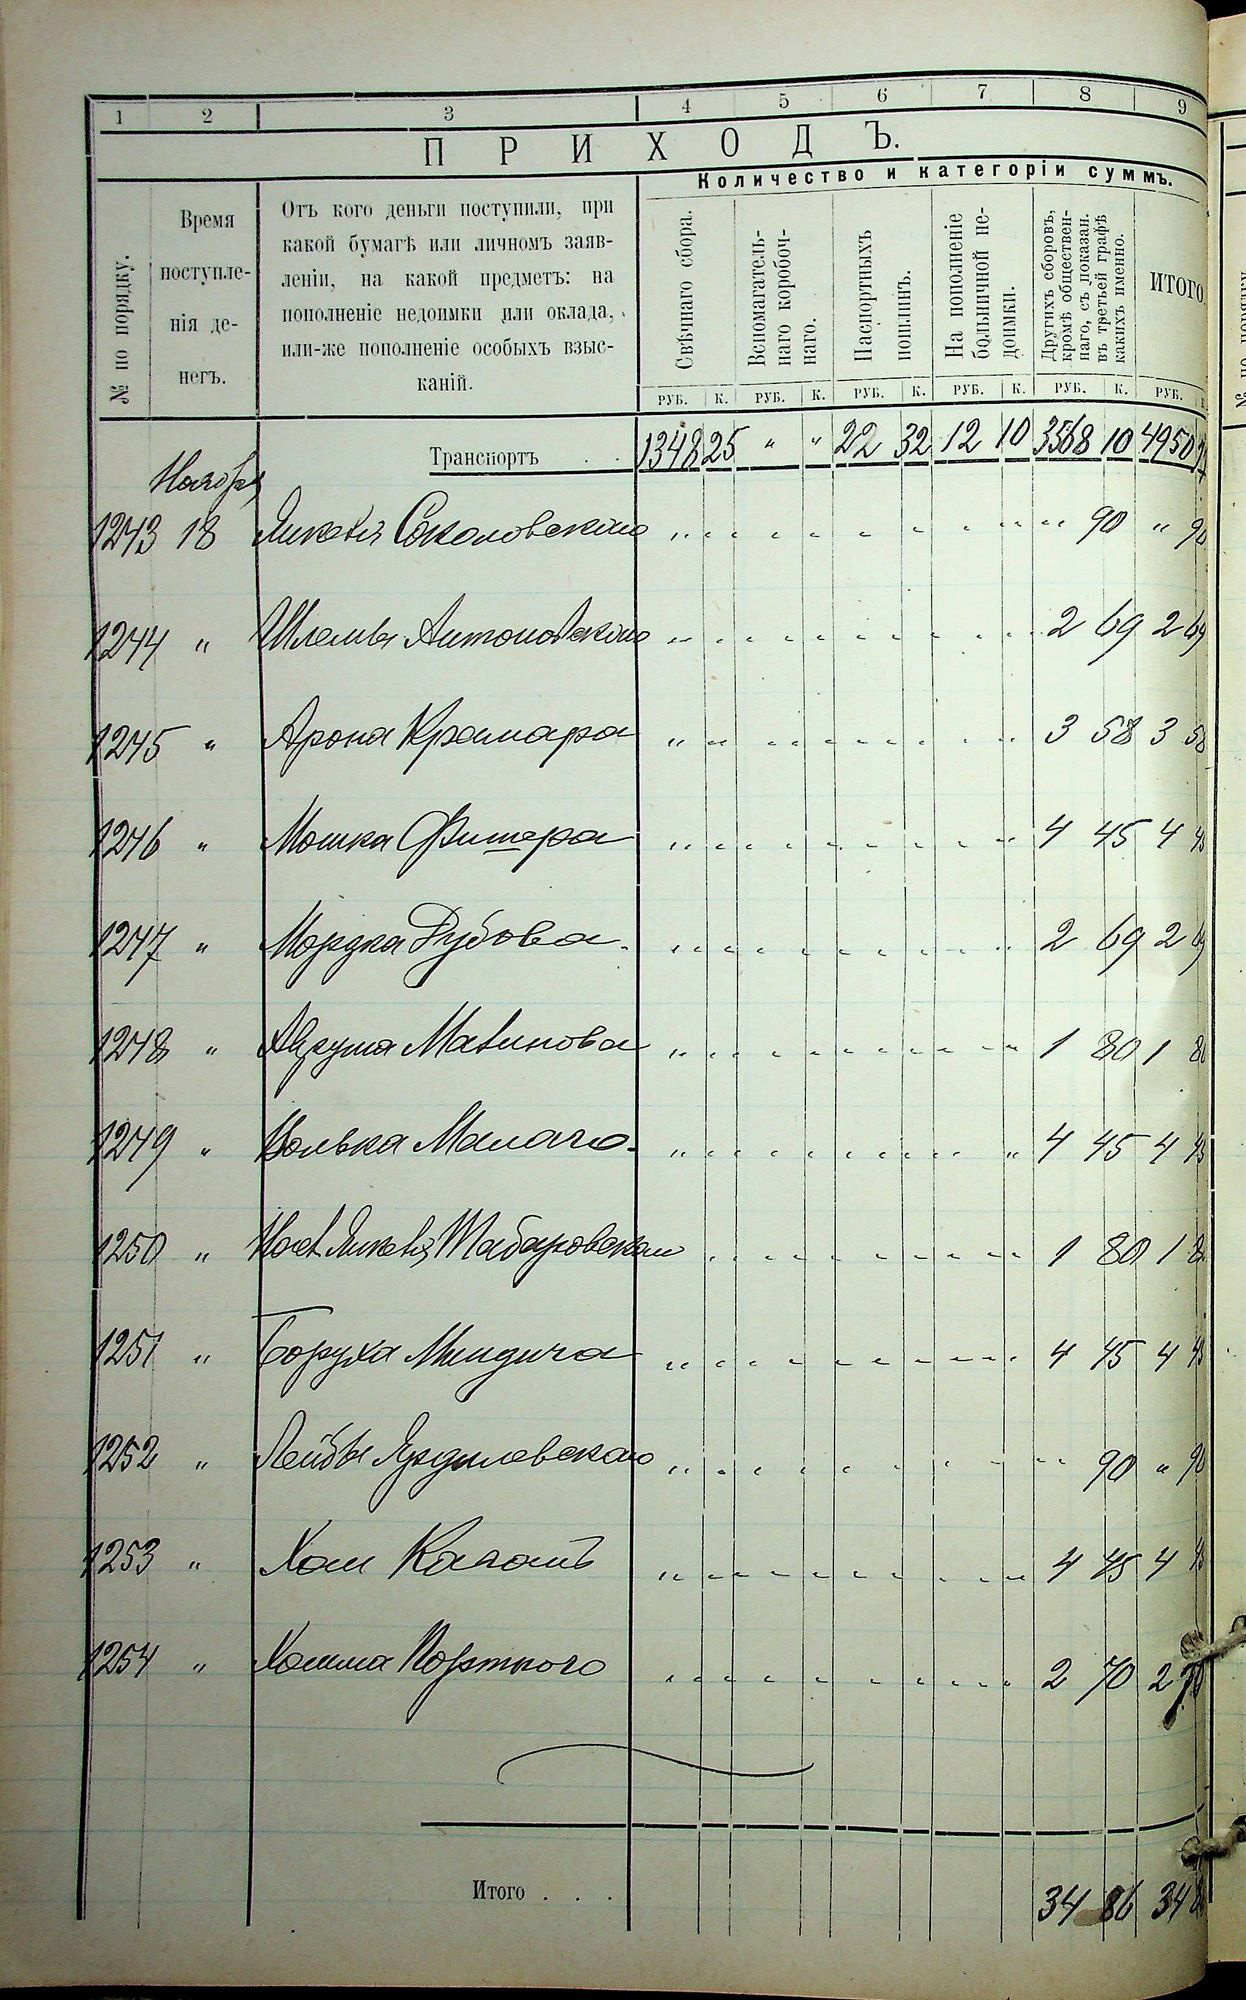 1 2 3 4 5 6 7 8 9
ПРИХОДЪ.
Количество и категоріи суммъ.
№ по порядку.
Время
поступле-
нія де-
негъ.
Отъ кого деньги поступили, при
какой бумагѣ или личномъ заяв-
леніи, на какой предметъ: на
пополненіе недоимки или оклада,
или-же пополненіе особыхъ взыс-
каній.
Свѣчнаго сбора.
Вспомагатель-
наго коробоч-
наго.
Паспортныхъ
пошлинъ.
На пополненіе
больничной не-
доимки.
Другихъ сборовъ,
кромѣ обществен-
наго, съ показан.
въ третьей графѣ
какихъ именно.
ИТОГО.
РУБ. К. РУБ. К. РУБ. К. РУБ. К. РУБ. К. РУБ.
Транспортъ . . 1348 25 " " 22 32 12 10 3568 10 4950
Ноября
1243 18 Янкеля Соколовского 90 " 90
1244 " Шлемы Антоновского 2 69 2 69
1245 " Арона Крамара 3 58 3 58
1246 " Мошка Фишера 4 45 4 45
1247 " Мордка Дубова 2 69 2 69
1248 " Малинова 1 80 1 80
1249 " Волька Малого 4 45 4 45
1250 " Янкеля Табаровского 1 80 1 80
1251 " Боруха Миндича 4 45 4 45
1252 " Лейбы 90 " 90
1253 " Хаим Каганъ 4 45 4 45
1254 " Портного 2 70 2 70
Итого . . . 34 86 34 86